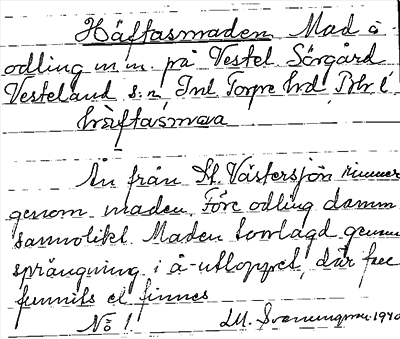 Häftasmaden Mad å
odling m m. på Vestel Sörgård
Vesteland s:n,
häftasmaa
Ån från St. Västersjön rinner
genom maden. Före odling damm
sannolikt. Maden torrlagd genom
sprängning i å-utloppet, där fee
funnits el finnes
No 1.
1940